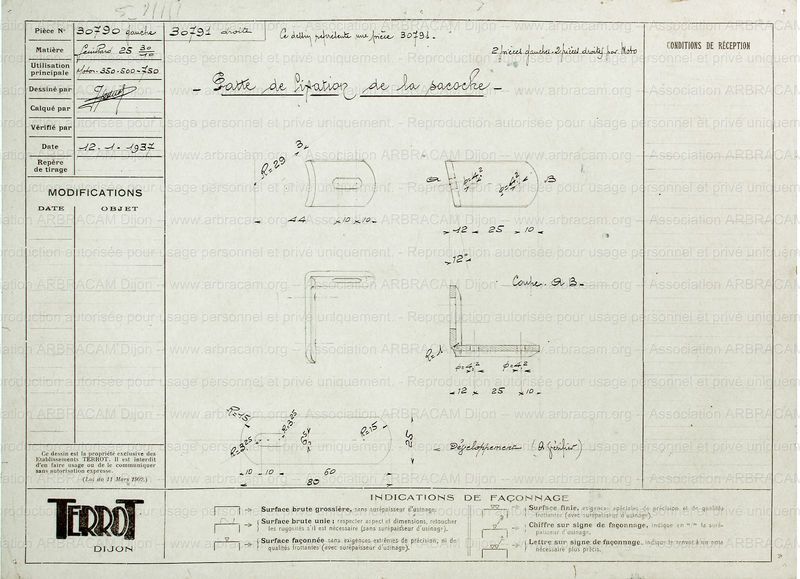 Pièce N° 30790 gauche 30791 droite
Ce dessin représente une pièce 30791.
Matière 25 30/10
2 pièces gauches-2 pièces droites par Moto
CONDITIONS DE RÉCEPTION
Utilisation principale Motos-350-500-750
Patte de fixation de la sacoche
Dessiné par
Calqué par
Vérifié par
Date 12.1.1937
Repère de tirage
MODIFICATIONS
DATE OBJET
R=29 3
44 10 10
A B
12 25 10
12
Coupe. AB
R=1
12 25 10
R=15
R=3,25
R=3,25
R=15
25
10 10 60
80
Développement (à vérifier)
Ce dessin est la propriété exclusive des
Etablissements TERROT. Il est interdit
d'en faire usage ou de le communiquer
sans autorisation expresse.
(Loi du 11 Mars 1902.)
TERROT
DIJON
INDICATIONS DE FAÇONNAGE
Surface brute grossière, sans surépaisseur d'usinage.
Surface brute unie; respecter aspect et dimensions, retoucher
les rugosités s'il est nécessaire (sans surépaisseur d'usinage).
Surface façonnée sans exigences extrêmes de précision, ni de
qualités frottantes (avec surépaisseur d'usinage).
Surface finie, exigences spéciales de précision et de qualités
frottantes (avec surépaisseur d'usinage).
Chiffre sur signe de façonnage, indique en m/m la surépaisseur d'usinage.
Lettre sur signe de façonnage, indique le renvoi à une note
nécessaire plus précis.
www.arbracam.org - Association ARBRACAM Dijon - www.arbracam.org - Association ARBRACAM Dijon
Reproduction autorisée pour usage personnel et privé uniquement.